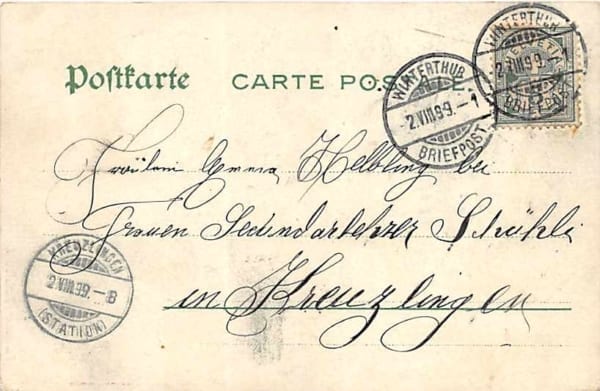 Postkarte CARTE POSTALE
WINTERTHUR
2.VIII.99.–1
BRIEFPOST
WINTERTHUR
2.VIII.99.–1
BRIEFPOST
HELVETIA
Fräulein Helbling bei
Frauen Secundarlehrer Stühli
in Kreuzlingen
KREUZLINGEN
2.VIII.99.–8
(STATION)